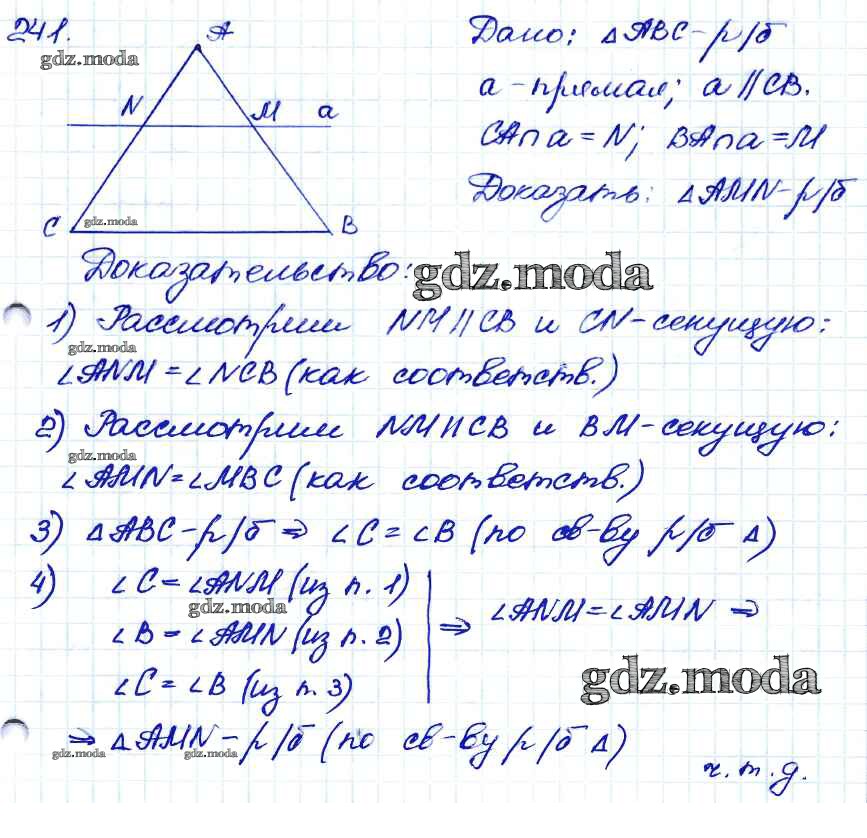 241.
gdz.moda
A
N M a
C gdz.moda B
Дано: △ABC - р/б
a - прямая; a ∥ CB.
CA∩a = N; BA∩a = M
Доказать: △AMN - р/б
Доказательство:
gdz.moda
1) Рассмотрим NM ∥ CB и CN - секущую:
gdz.moda
∠ANM = ∠NCB (как соответств.)
2) Рассмотрим NM ∥ CB и BM - секущую:
gdz.moda
∠AMN = ∠MBC (как соответств.)
3) △ABC - р/б ⇒ ∠C = ∠B (по св-ву р/б △)
4) ∠C = ∠ANM (из п. 1)
gdz.moda
∠B = ∠AMN (из п. 2)
∠C = ∠B (из п. 3)
⇒ ∠ANM = ∠AMN ⇒
gdz.moda
⇒ △AMN - р/б (по св-ву р/б △)
gdz.moda
ч.т.д.